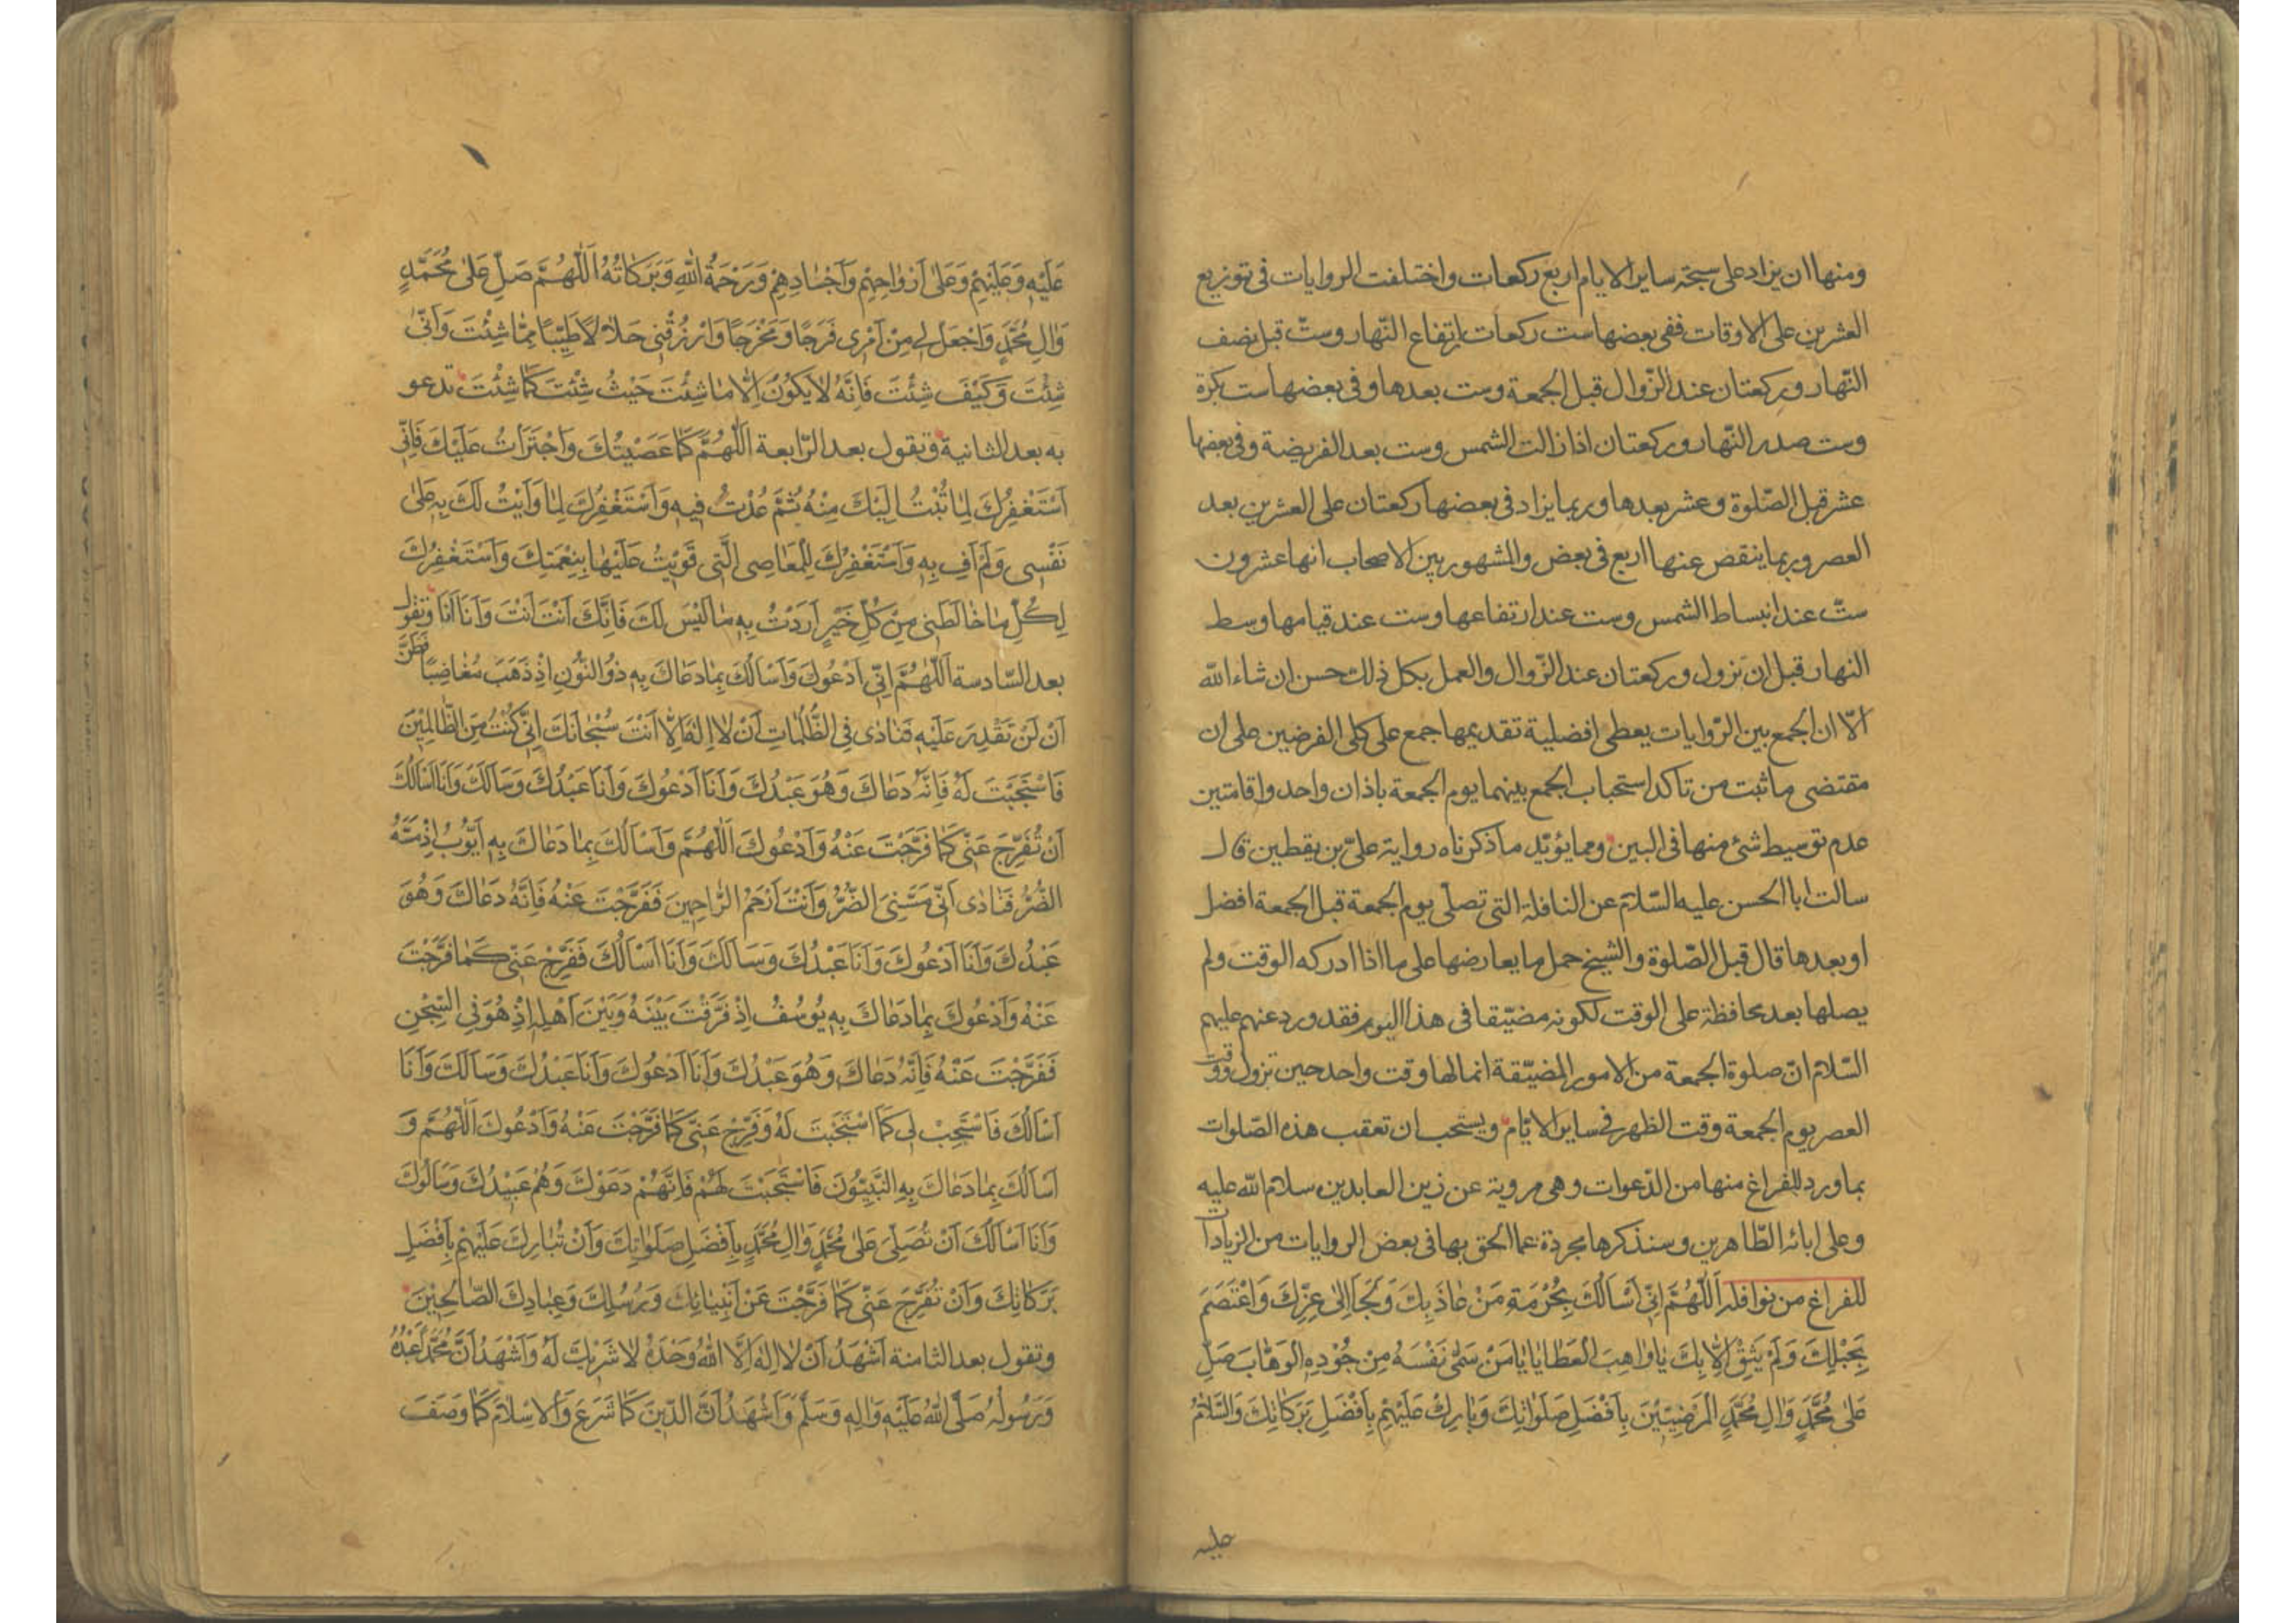 ومنها ان يزاد على سبحة ساير الايام اربع ركعات واختلفت الروايات فى توزيع
العشرين على الاوقات ففى بعضها ست ركعات ارتفاع النّهار وستّ قبل نصف
النّهار وركعتان عند الزّوال قبل الجمعة وست بعدها وفى بعضها ست بكرة
وست صدر النّهار وركعتان اذا زالت الشمس وست بعد الفريضة وفى بعضها
عشر قبل الصّلوة وعشر بعدها وربما يزاد فى بعضها ركعتان على العشرين بعد
العصر وربما ينقص عنها اربع فى بعض والمشهور بين الاصحاب انها عشرون
ستّ عند انبساط الشمس وست عند ارتفاعها وست عند قيامها وسط
النهار قبل ان تزول وركعتان عند الزّوال والعمل بكل ذلك حسن ان شاء الله
الّا ان الجمع بين الرّوايات يعطى افضلية تقديمها جمع على كلى الفرضين على ان
مقتضى ما ثبت من تاكد استحباب الجمع بينهما يوم الجمعة باذان واحد واقامتين
عدم توسيط شئ منها فى البين ومما يؤيّد ما ذكرناه رواية علىّ بن يقطين قال
سالت ابا الحسن عليه السّلام عن النافلة التى تصلّى يوم الجمعة قبل الجمعة افضل
او بعدها قال قبل الصّلوة والشيخ حمل ما يعارضها على ما اذا ادركه الوقت ولم
يصلها بعد محافظة على الوقت لكونه مضيّقا فى هذا اليوم فقد ورد عنهم عليهم
السّلام انّ صلوة الجمعة من الامور المضيّقة انما لها وقت واحد حين تزول ووقت
العصر يوم الجمعة وقت الظهر فى ساير الايّام ويستحب ان تعقب هذه الصّلوات
بما ورد للفراغ منها من الدّعوات وهى مروية عن زين العابدين سلام الله عليه
وعلى ابائه الطّاهرين وسنذكرها مجردة عما الحق بها فى بعض الروايات من الزيادات
للفراغ من نوافله اَللّهُمَّ اِنّى اَسْاَلُكَ بِحُرْمَةِ مَنْ عَاذَ بِكَ وَلَجَاَ اِلىٰ عِزِّكَ وَاعْتَصَمَ
بِحَبْلِكَ وَلَمْ يَثِقْ اِلّٰا بِكَ يٰا وٰاهِبَ الْعَطٰايٰا يٰا مَنْ سَمّٰى نَفْسَهُ مِنْ جُوْدِهِ الْوَهّٰابَ صَلِّ
عَلىٰ مُحَمَّدٍ وَاٰلِ مُحَمَّدٍ الْمَرْضِيّيْنَ بِاَفْضَلِ صَلَوٰاتِكَ وَبٰارِكْ عَلَيْهِمْ بِاَفْضَلِ بَرَكٰاتِكَ وَالسَّلٰامُ
عليه
عَلَيْهِ وَعَلَيْهِمْ وَعَلىٰ اَرْوٰاحِهِمْ وَاَجْسٰادِهِمْ وَرَحْمَةُ اللهِ وَبَرَكٰاتُهُ اَللّٰهُمَّ صَلِّ عَلىٰ مُحَمَّدٍ
وَاٰلِ مُحَمَّدٍ وَاجْعَلْ لى مِنْ اَمْرى فَرَجًا وَمَخْرَجًا وَارْزُقْنى حَلٰالًا طَيِّبًا مِمّٰا شِئْتَ وَاَنّٰى
شِئْتَ وَكَيْفَ شِئْتَ فَاِنَّهُ لٰا يَكُونُ اِلّٰا مٰا شِئْتَ حَيْثُ شِئْتَ كَمٰا شِئْتَ تدعو
به بعد الثانية وتقول بعد الرّابعة اَللّٰهُمَّ كَمٰا عَصَيْتُكَ وَاجْتَرَاْتُ عَلَيْكَ فَاِنّى
اَسْتَغْفِرُكَ لِمٰا تُبْتُ اِلَيْكَ مِنْهُ ثُمَّ عُدْتُ فيهِ وَاَسْتَغْفِرُكَ لِمٰا وَاَيْتُ لَكَ بِهِ عَلىٰ
نَفْسى وَلَمْ اَفِ بِهِ وَاَسْتَغْفِرُكَ لِلْمَعٰاصِى الَّتى قَوِيْتُ عَلَيْهٰا بِنِعْمَتِكَ وَاَسْتَغْفِرُكَ
لِكُلِّ مٰا خٰالَطَنى مِنْ كُلِّ خَيْرٍ اَرَدْتُ بِهِ مٰا لَيْسَ لَكَ فَاِنَّكَ اَنْتَ اَنْتَ وَاَنَا اَنَا وتقول
بعد السّادسة اَللّٰهُمَّ اِنّى اَدْعُوكَ وَاَسْاَلُكَ بِمٰا دَعٰاكَ بِهِ ذُو النُّوْنِ اِذْ ذَهَبَ مُغٰاضِبًا فَظَنَّ
اَنْ لَنْ تَقْدِرَ عَلَيْهِ فَنٰادٰى فِى الظُّلُمٰاتِ اَنْ لٰا اِلٰهَ اِلّٰا اَنْتَ سُبْحٰانَكَ اِنّى كُنْتُ مِنَ الظّٰالِمِيْنَ
فَاسْتَجَبْتَ لَهُ فَاِنَّهُ دَعٰاكَ وَهُوَ عَبْدُكَ وَاَنَا اَدْعُوكَ وَاَنَا عَبْدُكَ وَسَاَلَكَ وَاَنَا اَسْاَلُكَ
اَنْ تُفَرِّجَ عَنّى كَمٰا فَرَّجْتَ عَنْهُ وَاَدْعُوكَ اَللّٰهُمَّ وَاَسْاَلُكَ بِمٰا دَعٰاكَ بِهِ اَيّوُبُ اِذْ مَسَّهُ
الضُّرُّ فَنٰادٰى اَنّى مَسَّنِىَ الضُّرُّ وَاَنْتَ اَرْحَمُ الرّٰاحِمِينَ فَفَرَّجْتَ عَنْهُ فَاِنَّهُ دَعٰاكَ وَهُوَ
عَبْدُكَ وَاَنَا اَدْعُوكَ وَاَنَا عَبْدُكَ وَسَاَلَكَ وَاَنَا اَسْاَلُكَ فَفَرِّجْ عَنّى كَمٰا فَرَّجْتَ
عَنْهُ وَاَدْعُوكَ بِمٰا دَعٰاكَ بِهِ يُوسُفُ اِذْ فَرَّقْتَ بَيْنَهُ وَبَيْنَ اَهْلِهِ اِذْ هُوَ فِى السِّجْنِ
فَفَرَّجْتَ عَنْهُ فَاِنَّهُ دَعٰاكَ وَهُوَ عَبْدُكَ وَاَنَا اَدْعُوكَ وَاَنَا عَبْدُكَ وَسَاَلَكَ وَاَنَا
اَسْاَلُكَ فَاسْتَجِبْ لى كَمَا اسْتَجَبْتَ لَهُ وَفَرِّجْ عَنّى كَمٰا فَرَّجْتَ عَنْهُ وَاَدْعُوكَ اَللّٰهُمَّ وَ
اَسْاَلُكَ بِمٰا دَعٰاكَ بِهِ النَّبِيّوُنَ فَاسْتَجَبْتَ لَهُمْ فَاِنَّهُمْ دَعَوْكَ وَهُمْ عَبِيْدُكَ وَسَاَلُوكَ
وَاَنَا اَسْاَلُكَ اَنْ تُصَلِّىَ عَلىٰ مُحَمَّدٍ وَاٰلِ مُحَمَّدٍ بِاَفْضَلِ صَلَوٰاتِكَ وَاَنْ تُبٰارِكَ عَلَيْهِمْ بِاَفْضَلِ
بَرَكٰاتِكَ وَاَنْ تُفَرِّجَ عَنّى كَمٰا فَرَّجْتَ عَنْ اَنْبِيٰائِكَ وَرُسُلِكَ وَعِبٰادِكَ الصّٰالِحِيْنَ
وتقول بعد الثامنة اَشْهَدُ اَنْ لٰا اِلٰهَ اِلَّا اللهُ وَحْدَهُ لٰا شَرِيْكَ لَهُ وَاَشْهَدُ اَنَّ مُحَمَّدًا عَبْدُهُ
وَرَسُولُهُ صَلَّى اللهُ عَلَيْهِ وَاٰلِهِ وَسَلَّمَ وَاَشْهَدُ اَنَّ الدّينَ كَمٰا شَرَعَ وَالْاِسْلٰامَ كَمٰا وَصَفَ